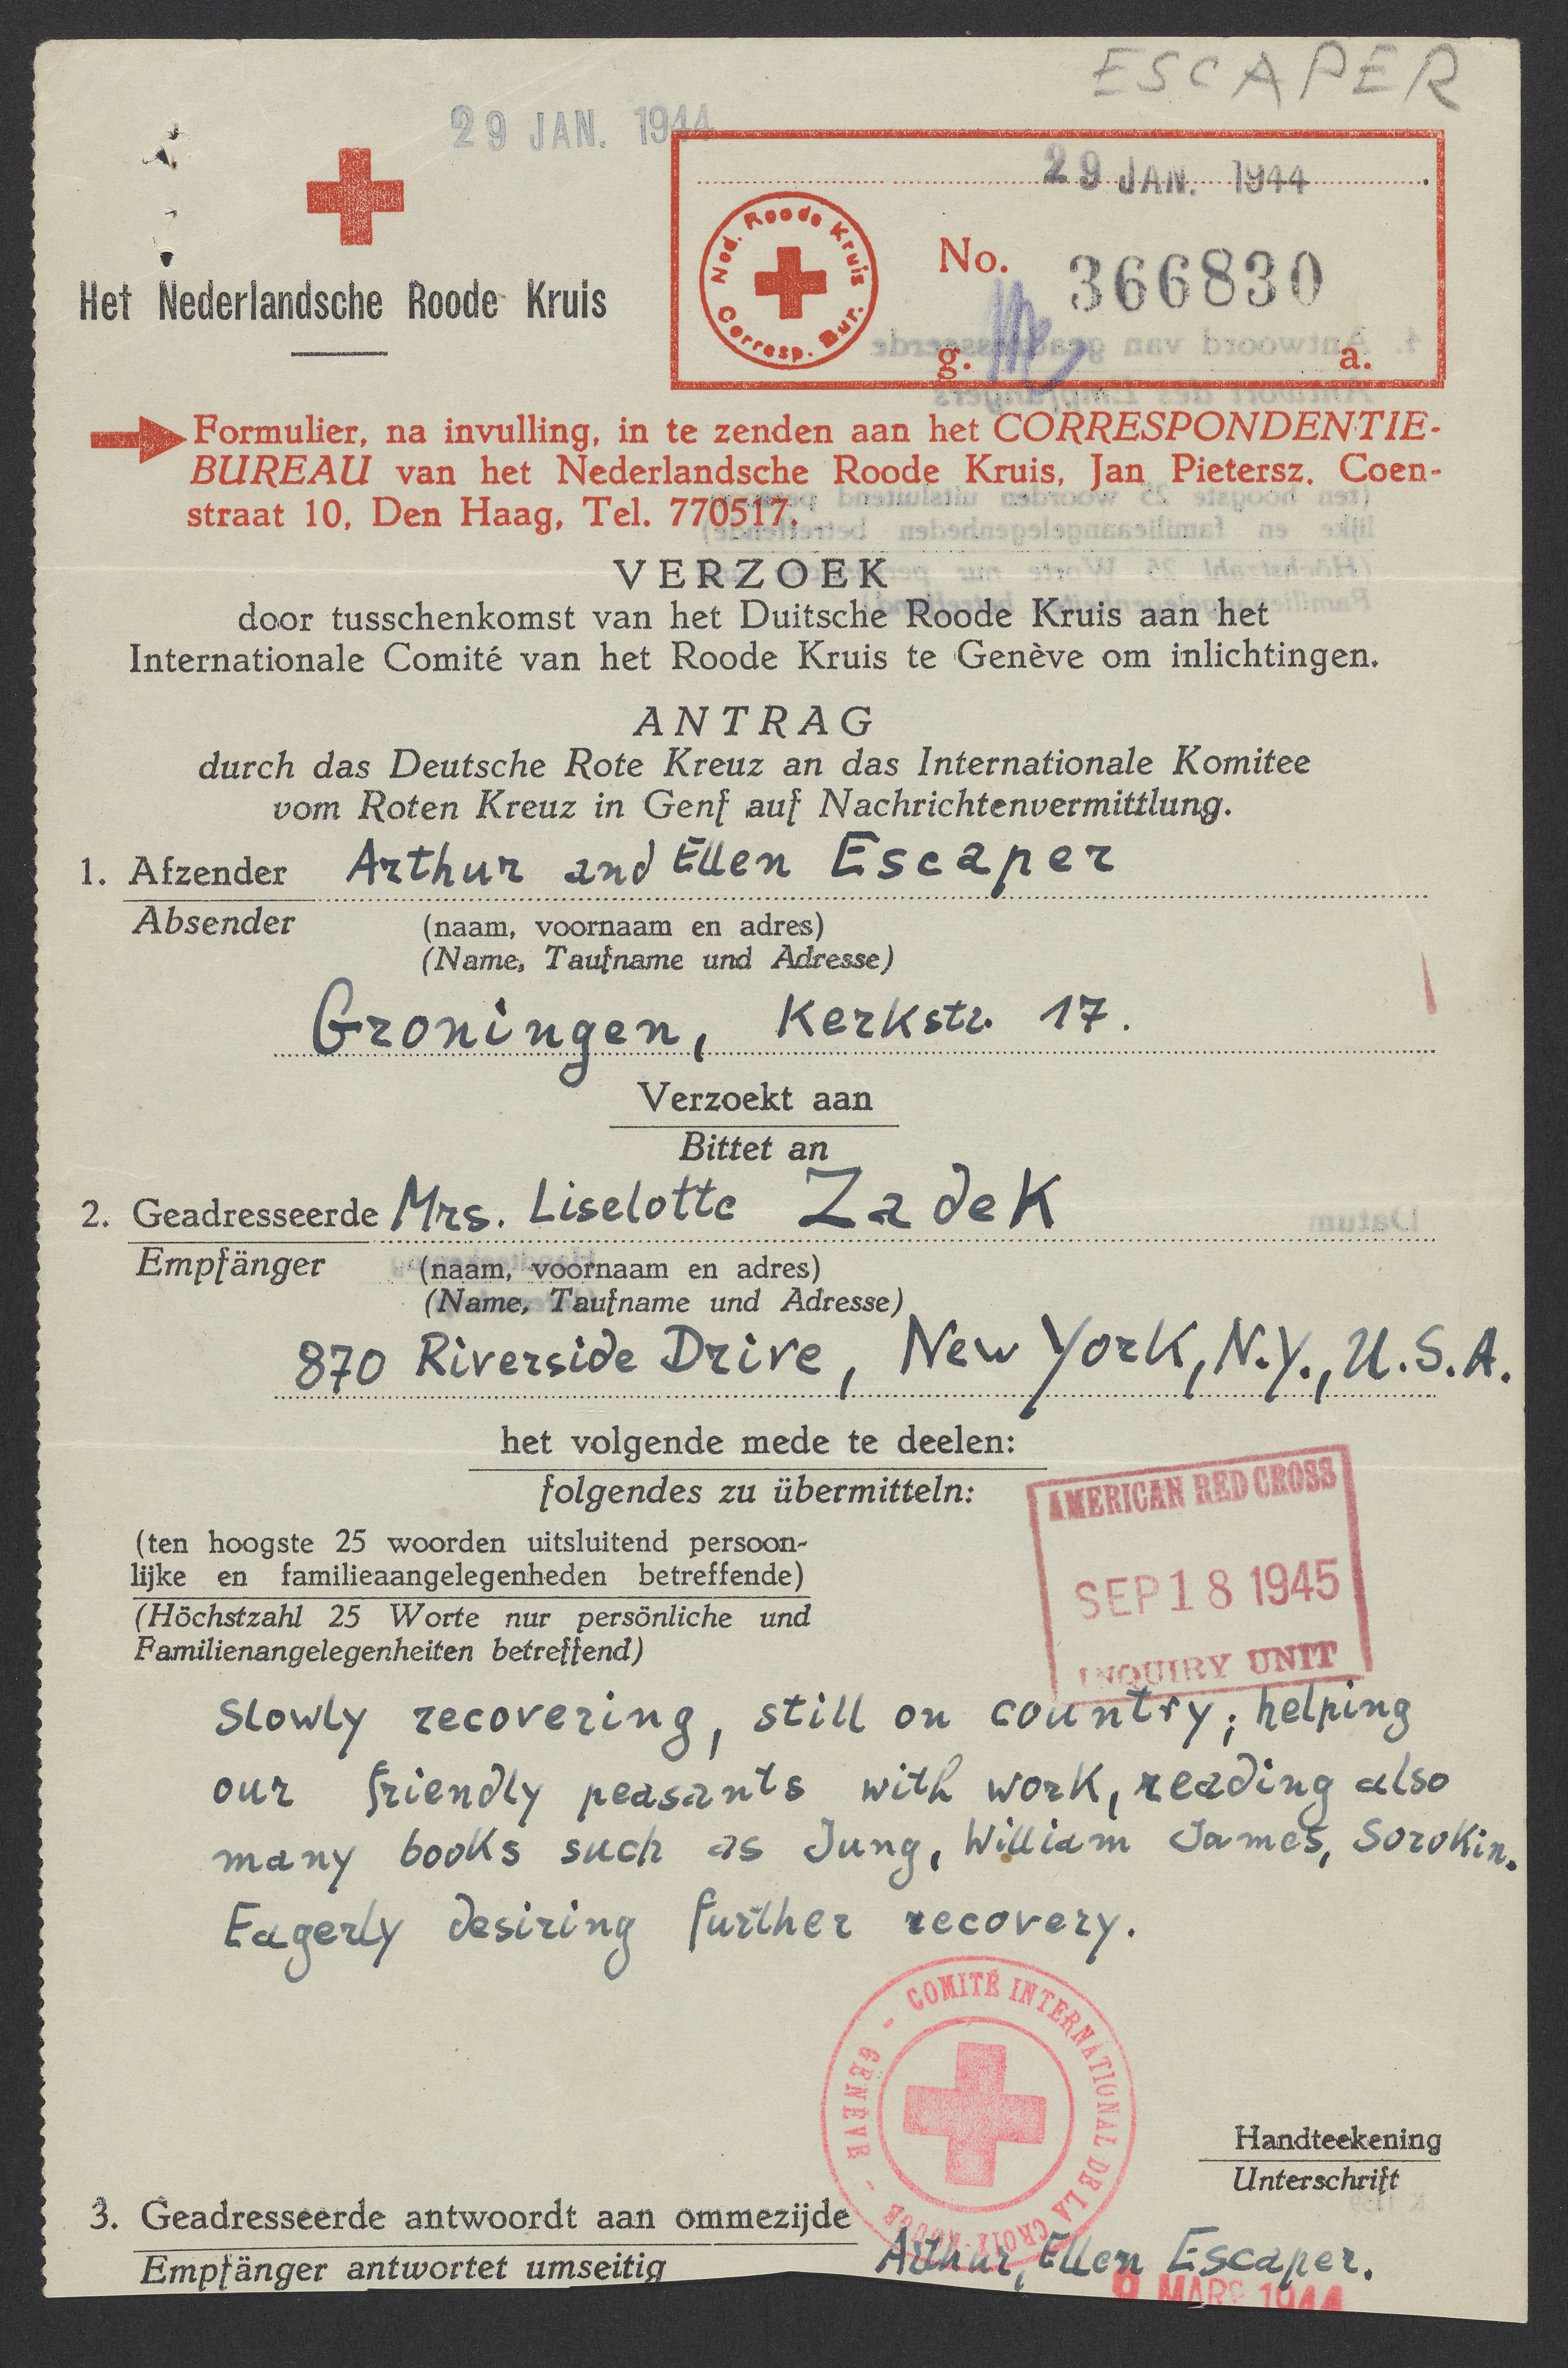 ESCAPER
29 JAN. 1944
29 JAN. 1944
Ned. Roode Kruis
Corresp. Bur.
No. 366830
g. a.
Het Nederlandsche Roode Kruis
Formulier, na invulling, in te zenden aan het CORRESPONDENTIE-
BUREAU van het Nederlandsche Roode Kruis, Jan Pietersz. Coen-
straat 10, Den Haag, Tel. 770517.
VERZOEK
door tusschenkomst van het Duitsche Roode Kruis aan het
Internationale Comité van het Roode Kruis te Genève om inlichtingen.
ANTRAG
durch das Deutsche Rote Kreuz an das Internationale Komitee
vom Roten Kreuz in Genf auf Nachrichtenvermittlung.
1. Afzender Arthur and Ellen Escaper
Absender (naam, voornaam en adres)
(Name, Taufname und Adresse)
Groningen, Kerkstr. 17.
Verzoekt aan
Bittet an
2. Geadresseerde Mrs. Liselotte Zadek
Empfänger (naam, voornaam en adres)
(Name, Taufname und Adresse)
870 Riverside Drive, New York, N.Y., U.S.A.
het volgende mede te deelen:
folgendes zu übermitteln:
(ten hoogste 25 woorden uitsluitend persoon-
lijke en familieaangelegenheden betreffende)
(Höchstzahl 25 Worte nur persönliche und
Familienangelegenheiten betreffend)
AMERICAN RED CROSS
SEP 18 1945
INQUIRY UNIT
Slowly recovering, still on country; helping
our friendly peasants with work, reading also
many books such as Jung, William James, Sorokin.
Eagerly desiring further recovery.
COMITÉ INTERNATIONAL DE LA CROIX-ROUGE - GENÈVE -
Handteekening
Unterschrift
3. Geadresseerde antwoordt aan ommezijde
Empfänger antwortet umseitig
Arthur, Ellen Escaper.
9 MARS 1944